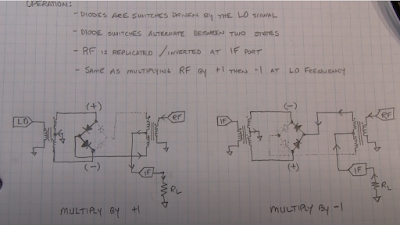 OPERATION:
- DIODES ARE SWITCHES DRIVEN BY THE LO SIGNAL
- DIODE SWITCHES ALTERNATE BETWEEN TWO STATES
- RF IS REPLICATED / INVERTED AT IF PORT
- SAME AS MULTIPLYING RF BY +1 THEN -1 AT LO FREQUENCY
(+)
LO
RF
(-)
IF
RL
MULTIPLY BY +1
(-)
IF
RF
(+)
IF
RL
MULTIPLY BY -1